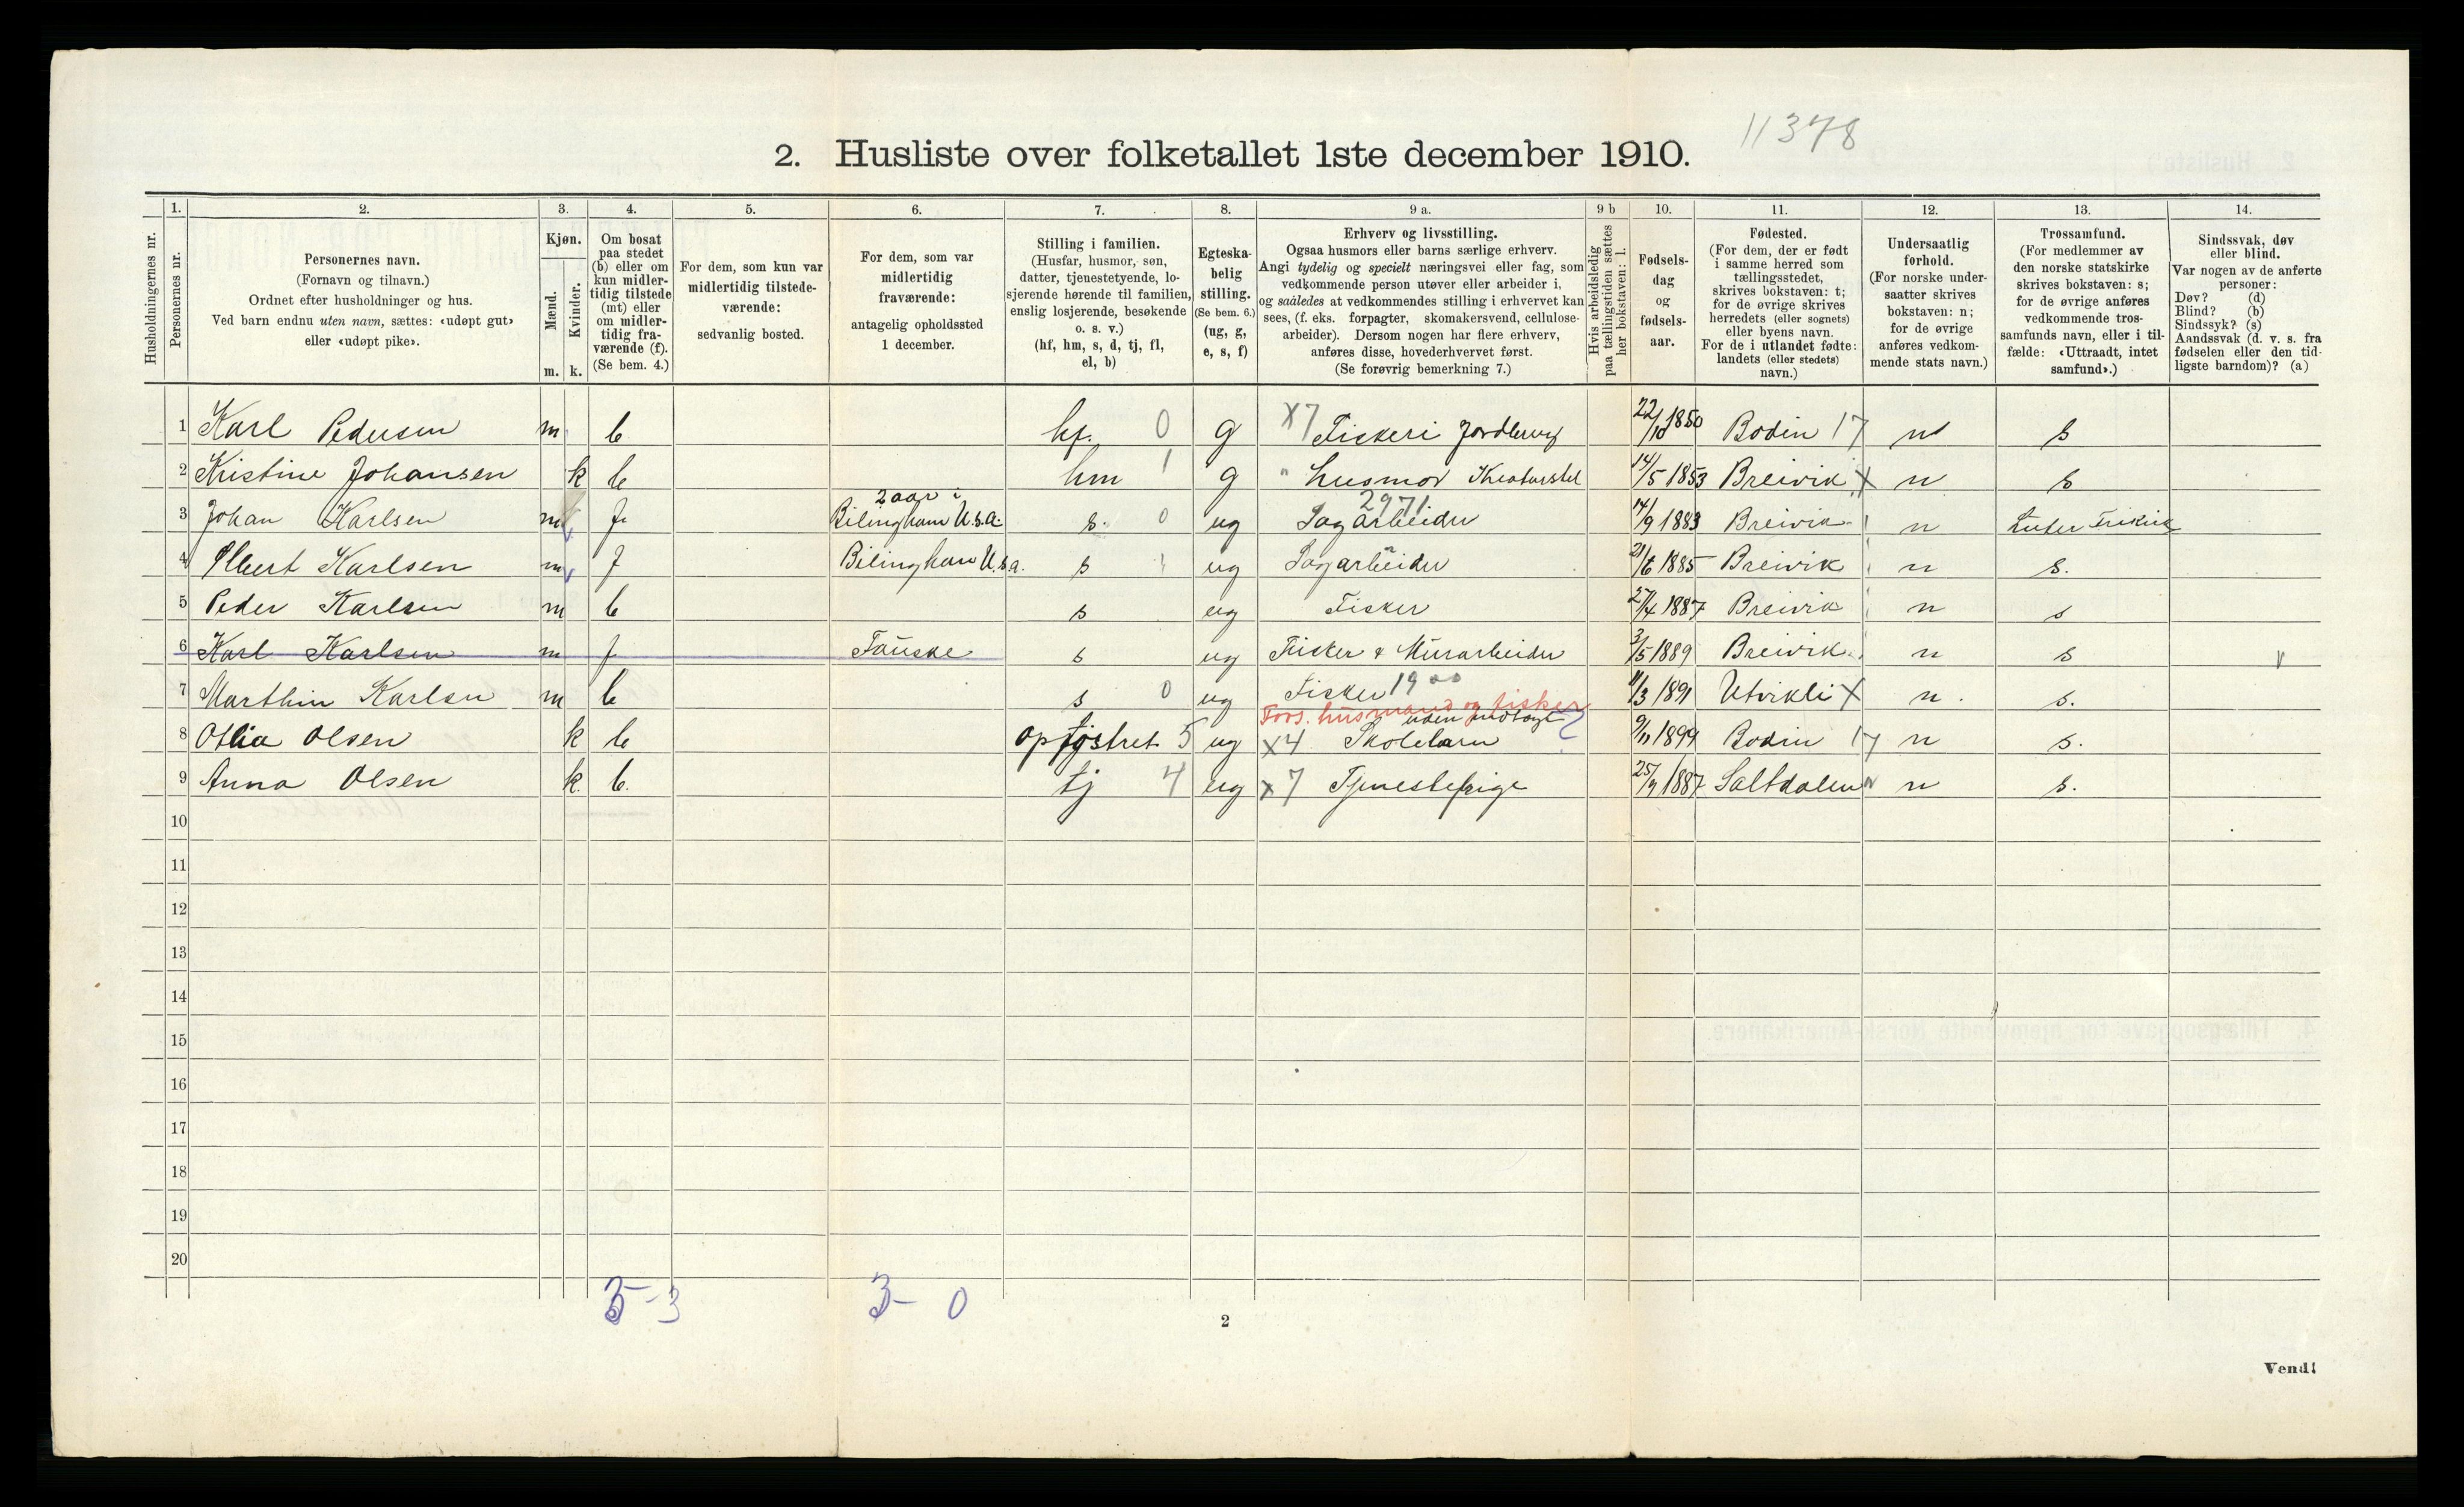 11378
2. Husliste over folketallet 1ste december 1910.
Husholdningernes nr.
1. Personernes nr.
2. Personernes navn.
(Fornavn og tilnavn.)
Ordnet efter husholdninger og hus.
Ved barn endnu uten navn, sættes: «udøpt gut»
eller «udøpt pike».
3. Kjøn.
Mænd. m.
Kvinder. k.
4. Om bosat
paa stedet
(b) eller om
kun midler-
tidig tilstede
(mt) eller
om midler-
tidig fra-
værende (f).
(Se bem. 4.)
5. For dem, som kun var
midlertidig tilstede-
værende:
sedvanlig bosted.
6. For dem, som var
midlertidig
fraværende:
antagelig opholdssted
1 december.
7. Stilling i familien.
(Husfar, husmor, søn,
datter, tjenestetyende, lo-
sjerende hørende til familien,
enslig losjerende, besøkende
o. s. v.)
(hf, hm, s, d, tj, fl,
el, b)
8. Egteska-
belig
stilling.
(Se bem. 6.)
(ug, g,
e, s, f)
9 a. Erhverv og livsstilling.
Ogsaa husmors eller barns særlige erhverv.
Angi tydelig og specielt næringsvei eller fag, som
vedkommende person utøver eller arbeider i,
og saaledes at vedkommendes stilling i erhvervet kan
sees, (f. eks. forpagter, skomakersvend, cellulose-
arbeider). Dersom nogen har flere erhverv,
anføres disse, hovederhvervet først.
(Se forøvrig bemerkning 7.)
9 b Hvis arbeidsledig
paa tællingstiden sættes
her bokstaven: l.
10. Fødsels-
dag
og
fødsels-
aar.
11. Fødested.
(For dem, der er født
i samme herred som
tællingsstedet,
skrives bokstaven: t;
for de øvrige skrives
herredets (eller sognets)
eller byens navn.
For de i utlandet fødte:
landets (eller stedets)
navn.)
12. Undersaatlig
forhold.
(For norske under-
saatter skrives
bokstaven: n;
for de øvrige
anføres vedkom-
mende stats navn.)
13. Trossamfund.
(For medlemmer av
den norske statskirke
skrives bokstaven: s;
for de øvrige anføres
vedkommende tros-
samfunds navn, eller i til-
fælde: «Uttraadt, intet
samfund».)
14. Sindssvak, døv
eller blind.
Var nogen av de anførte
personer:
Døv? (d)
Blind? (b)
Sindssyk? (s)
Aandssvak (d. v. s. fra
fødselen eller den tid-
ligste barndom)? (a)
1 Karl Pedersen m b hf. 0 g x7 Fiskeri Jordbrug 22/10 1850 Bodin 17 n s
2 Kristine Johansen k b hm 1 g " husmor Kreaturstel 14/5 1853 Breivik x n s
3 Johan Karlsen m f 2 aar i Bilingham U.S.a. s. 0 ug 2971 Sagarbeider 14/9 1883 Breivik n Luter Frikirk
4 Albert Karlsen m f Bilingham U.S.a. s ug Sagarbeider 21/6 1885 Breivik n s.
5 Peder Karlsen m b s ug Fisker 27/4 1887 Breivik n s
6 Karl Karlsen m f Fauske s ug Fisker & Murarbeider 3/5 1889 Breivik n s
7 Marthin Karlsen m b s 0 ug Fisker 1900 11/3 1891 Utvikli x n. s.
Fors. husmand og fisker
8 Otlia Olsen k b opfostret 5 ug uden x4 Skolebarn ? 9/11 1899 Bodin 17 n s.
9 Anna Olsen k. b. tj 4 ug x7 Tjenestepige 25/9 1887 Saltdalen n s.
10
11
12
13
14
15
16
17
18
19
20
5-3 3- 0
2
Vend!